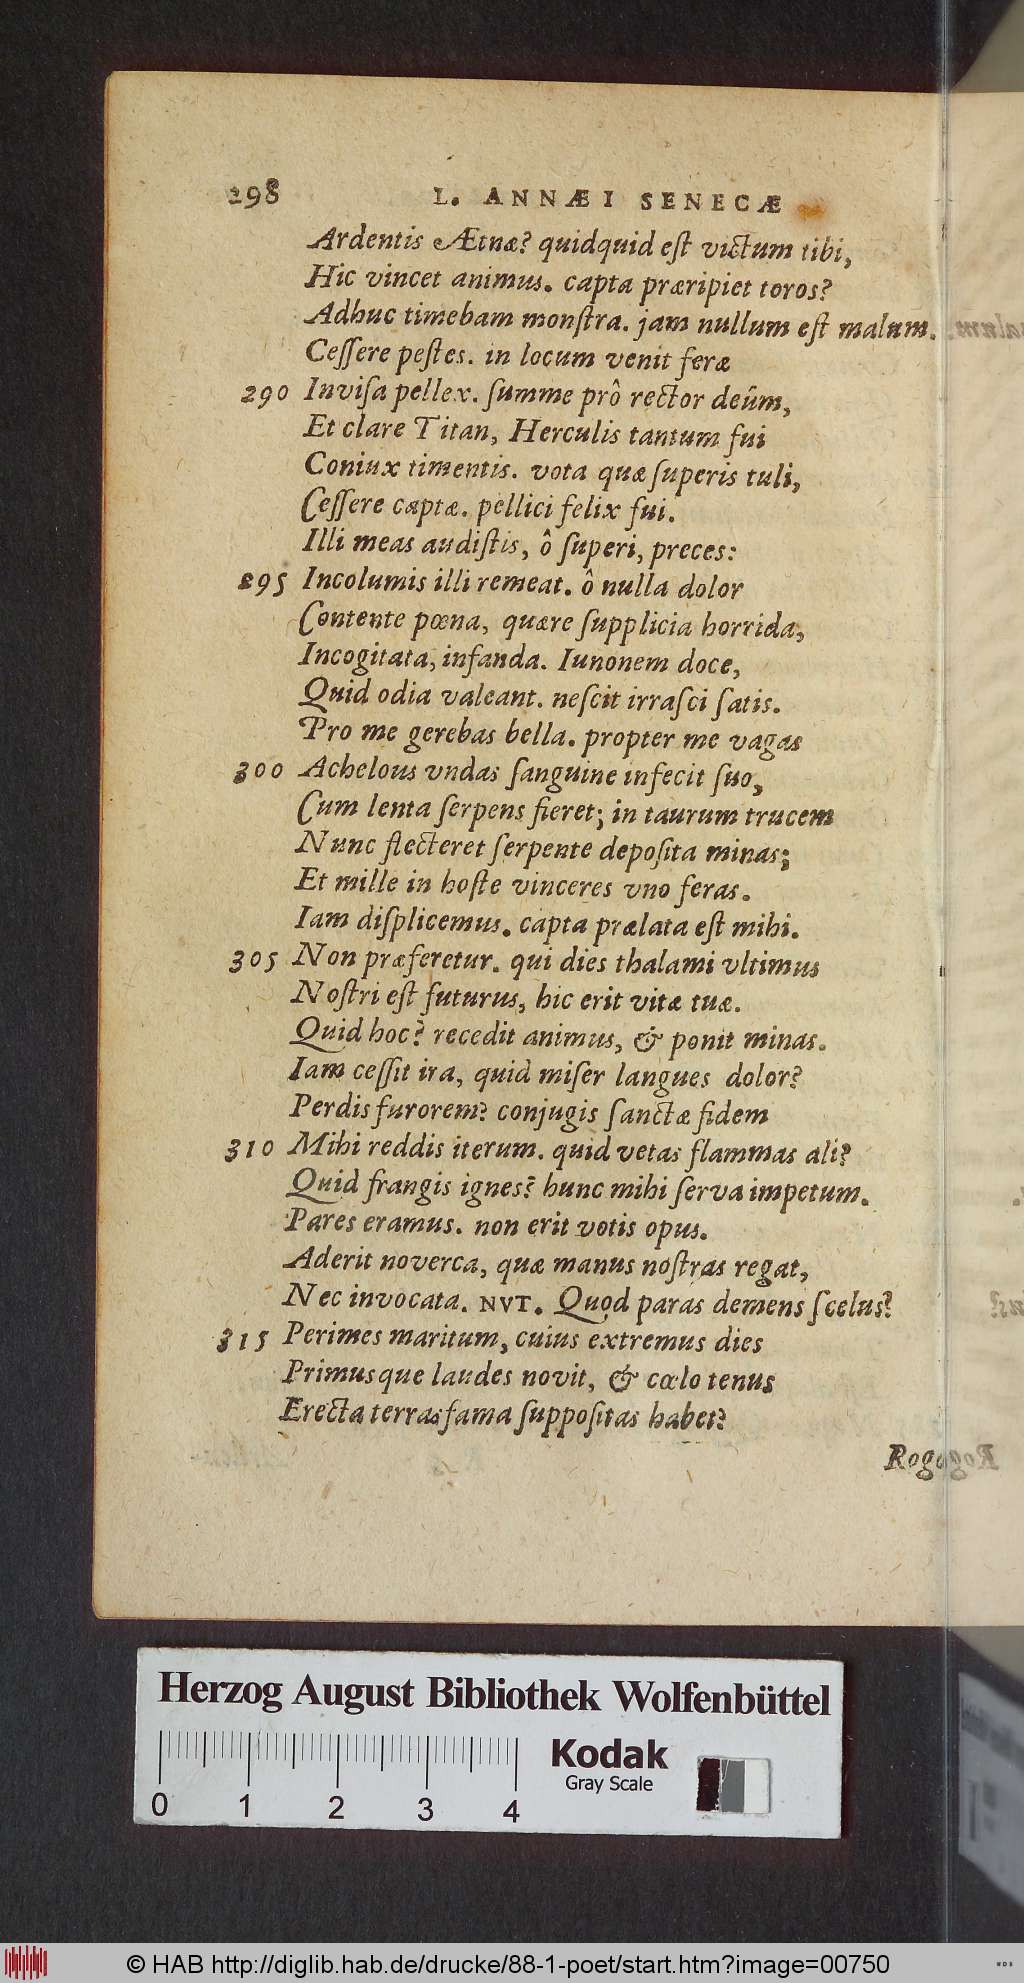 298 L. ANNÆI SENECÆ
Ardentis Ætnæ? quidquid eſt victum tibi,
Hic vincet animus. capta præripiet toros?
Adhuc timebam monſtra. jam nullum eſt malum.
Ceſſere peſtes. in locum venit feræ
290 Inviſa pellex. ſumme prô rector deûm,
Et clare Titan, Herculis tantum fui
Coniux timentis. vota quæ ſuperis tuli,
Ceſſere captæ. pellici felix fui.
Illi meas audiſtis, ô ſuperi, preces:
295 Incolumis illi remeat. ô nulla dolor
Contente pœna, quære ſupplicia horrida,
Incogitata, infanda. Iunonem doce,
Quid odia valeant. neſcit irraſci ſatis.
Pro me gerebas bella. propter me vagas
300 Achelous vndas ſanguine infecit ſuo,
Cum lenta ſerpens fieret; in taurum trucem
Nunc flecteret ſerpente depoſita minas;
Et mille in hoſte vinceres vno feras.
Iam diſplicemus. capta prælata eſt mihi.
305 Non præferetur. qui dies thalami vltimus
Noſtri eſt futurus, hic erit vitæ tuæ.
Quid hoc? recedit animus, & ponit minas.
Iam ceſſit ira, quid miſer langues dolor?
Perdis furorem? conjugis ſanctæ fidem
310 Mihi reddis iterum. quid vetas flammas ali?
Quid frangis ignes? hunc mihi ſerva impetum.
Pares eramus. non erit votis opus.
Aderit noverca, quæ manus noſtras regat,
Nec invocata. NVT. Quod paras demens ſcelus?
315 Perimes maritum, cuius extremus dies
Primusque laudes novit, & cœlo tenus
Erecta terras fama ſuppoſitas habet?
Rogo
Herzog August Bibliothek Wolfenbüttel
Kodak
Gray Scale
0 1 2 3 4
© HAB http://diglib.hab.de/drucke/88-1-poet/start.htm?image=00750